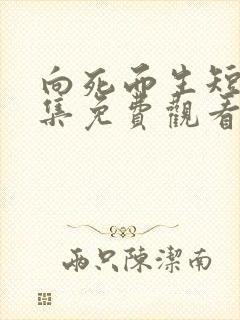 向死而生短
集免費觀看
兩只陳潔南